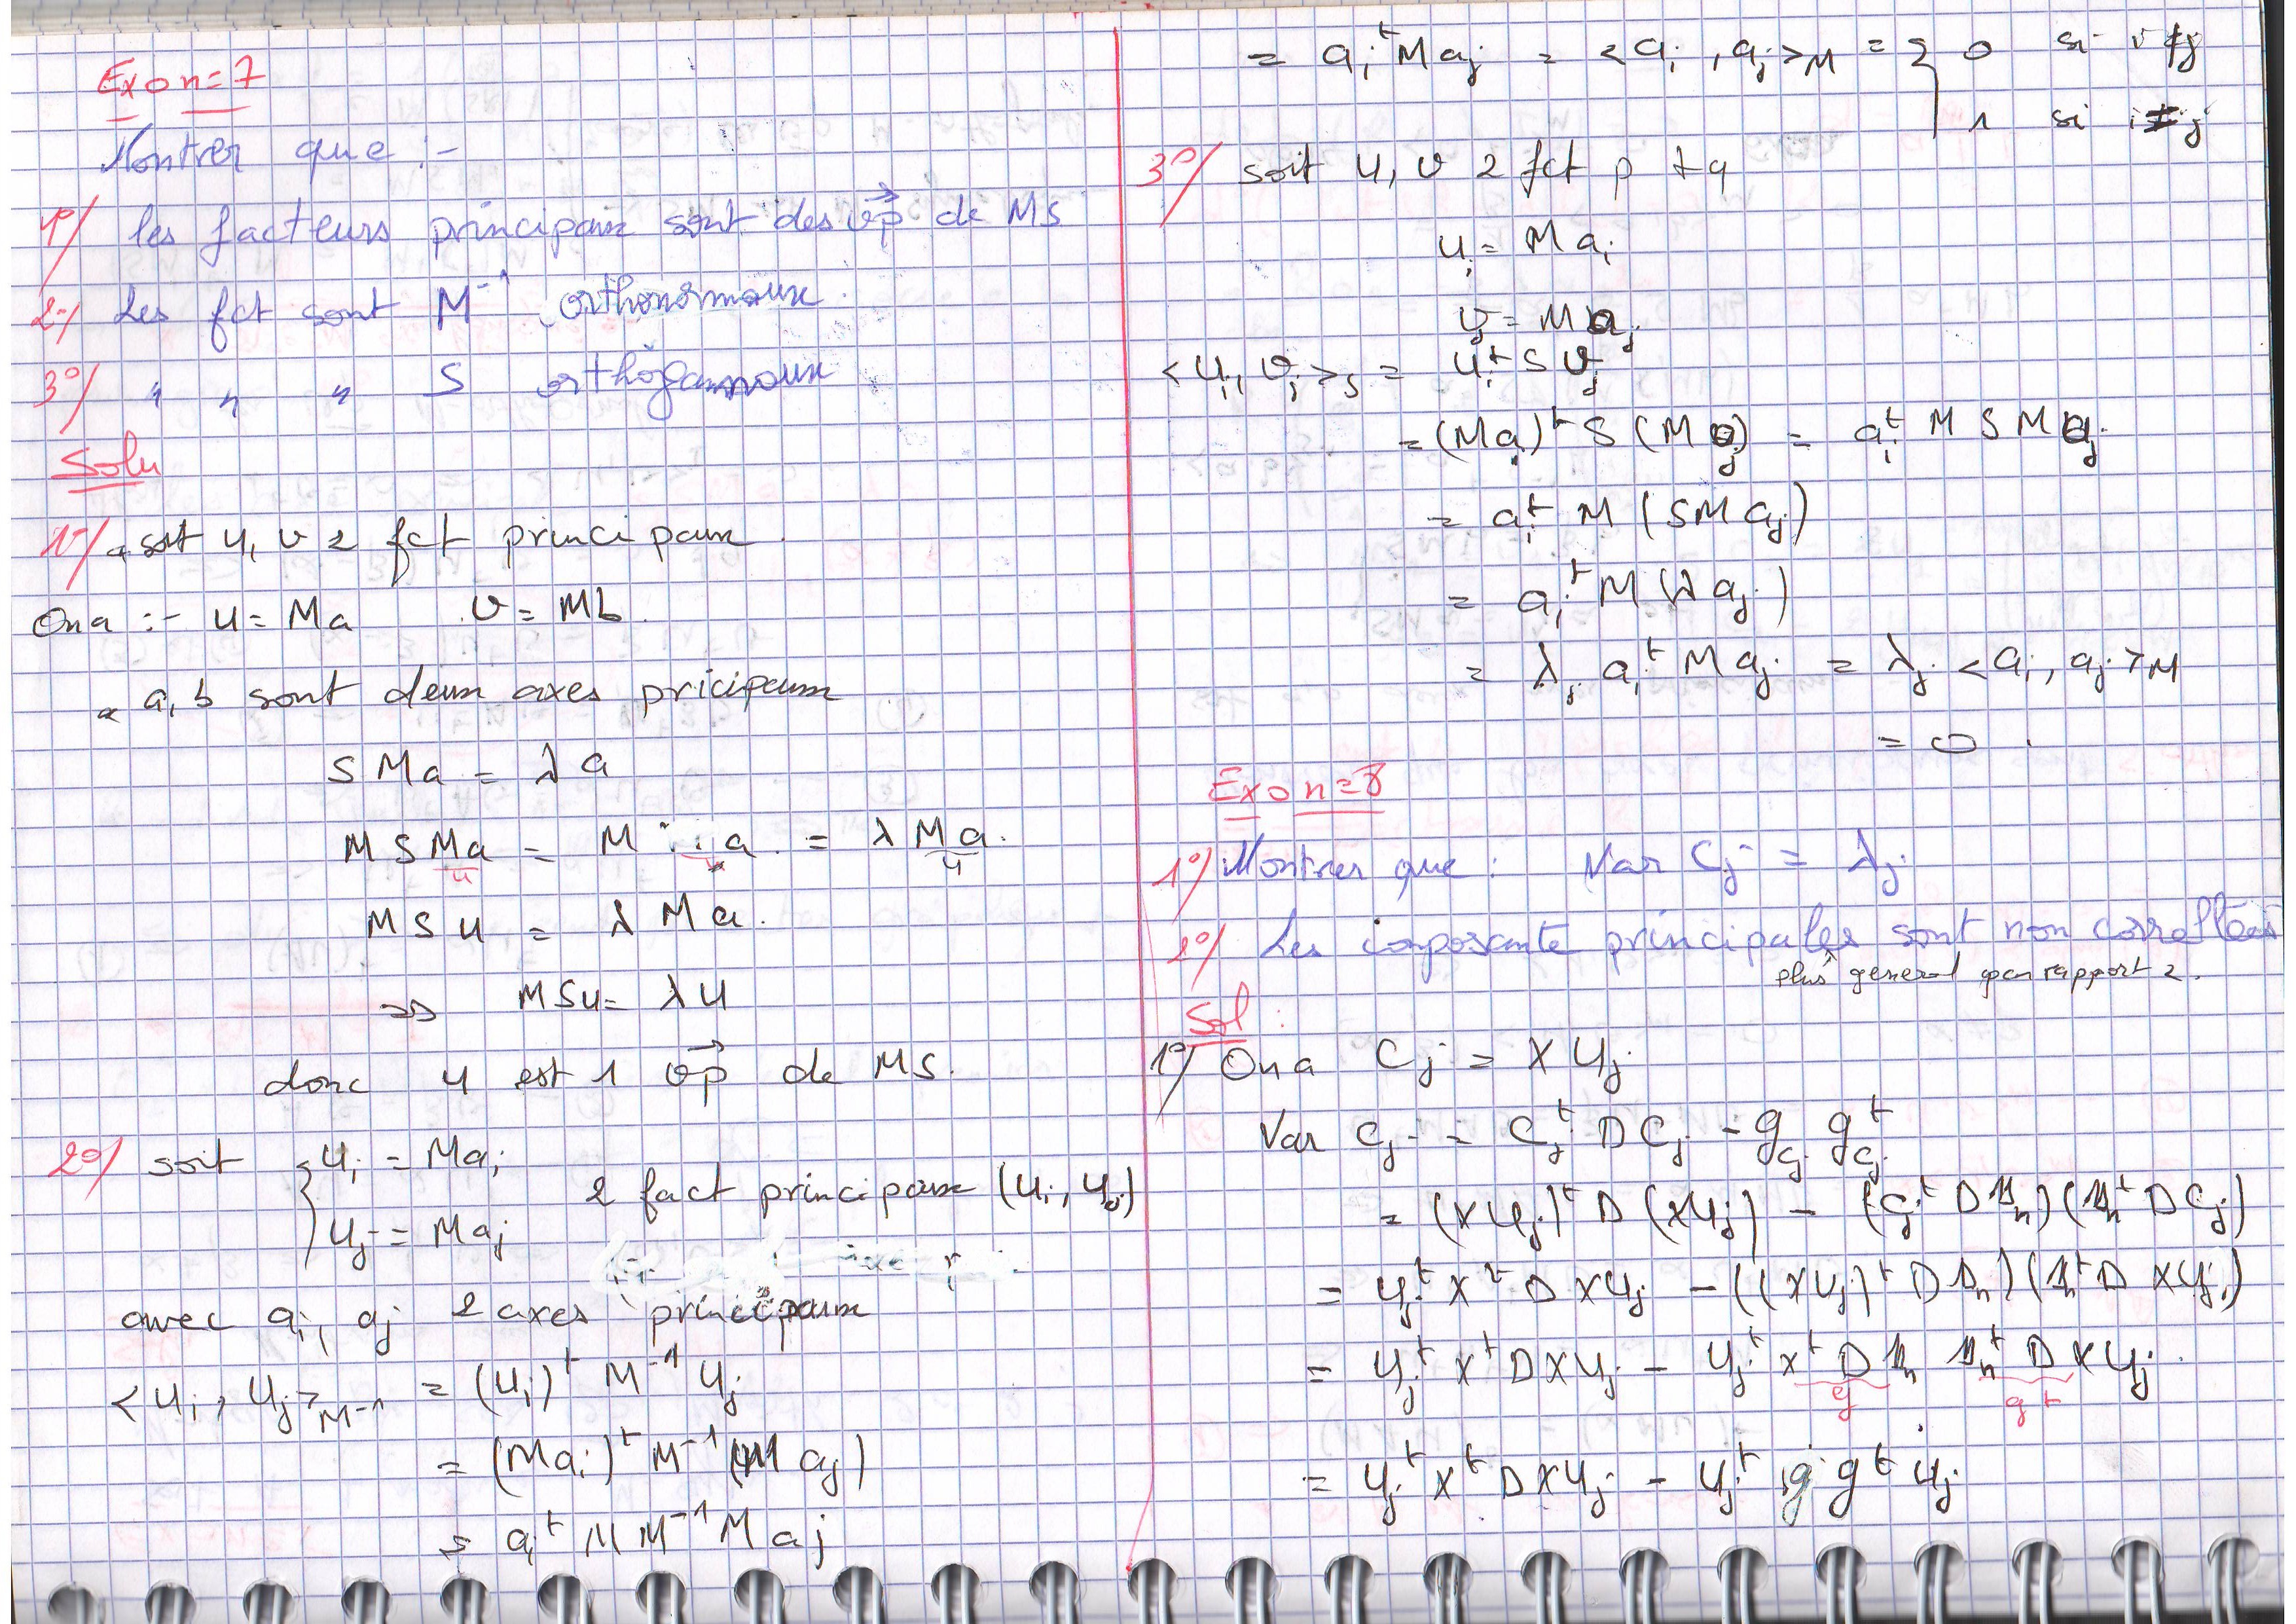 Exo n=7
Montrer que :-
1°/ les facteurs principaux sont des vp de MS
2-/ Les fct sont M⁻¹ orthonormaux.
3°/ " " " S orthogonaux
Solu
1-/ soit u, v 2 fct principaux
On a :- u = Ma v = Mb.
a, b sont deux axes pricipaux
SMa = λa
MSMa = M a = λMa.
u u
MSu = λMa.
⇒ MSu = λu
donc u est 1 vp de MS.
2°/ soit { uᵢ = Maᵢ
uⱼ = Maⱼ
2 fact principaux (uᵢ, uⱼ)
avec aᵢ, aⱼ 2 axes principaux
<uᵢ, uⱼ>M⁻¹ = (uᵢ)ᵗ M⁻¹ uⱼ
= (Maᵢ)ᵗ M⁻¹ (M aⱼ)
= aᵢᵗ M M⁻¹ M aⱼ
= aᵢᵗ M aⱼ = <aᵢ, aⱼ>M = { 0 si i ≠ j
1 si i = j
3°/ soit u, v 2 fct p tq
uᵢ = Maᵢ
vⱼ = Maⱼ
<uᵢ, vⱼ>S = uᵢᵗ S vⱼ
= (Maᵢ)ᵗ S (Maⱼ) = aᵢᵗ M S M aⱼ
= aᵢᵗ M (SMaⱼ)
= aᵢᵗ M (λaⱼ)
= λⱼ aᵢᵗ M aⱼ = λⱼ <aᵢ, aⱼ>M
= 0.
Exo n=8
1°/ Montrer que : Var Cⱼ = λⱼ.
2°/ Les composante principales sont non correllées
plus general par rapport 2.
Sol :
1°/ On a Cⱼ = X uⱼ
Var Cⱼ = Cⱼᵗ D Cⱼ - g_cⱼ g_cⱼᵗ
= (Xuⱼ)ᵗ D (Xuⱼ) - (Cⱼᵗ D 1ₙ)(1ₙᵗ D Cⱼ)
= uⱼᵗ Xᵗ D X uⱼ - ((Xuⱼ)ᵗ D 1ₙ)(1ₙᵗ D X uⱼ)
= uⱼᵗ Xᵗ D X uⱼ - uⱼᵗ Xᵗ D 1ₙ 1ₙᵗ D X uⱼ.
g gᵗ
= uⱼᵗ Xᵗ D X uⱼ - uⱼᵗ g gᵗ uⱼ